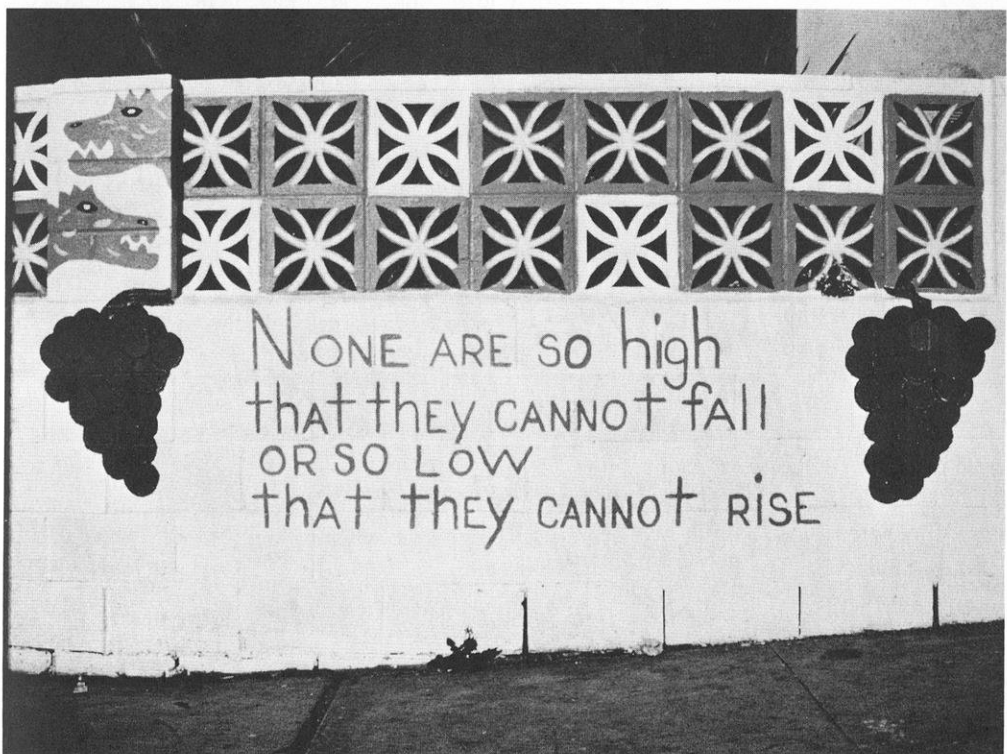 NONE ARE SO high
thAt they CANNOt fAll
OR SO LOW
thAt thEy CANNOt RiSE